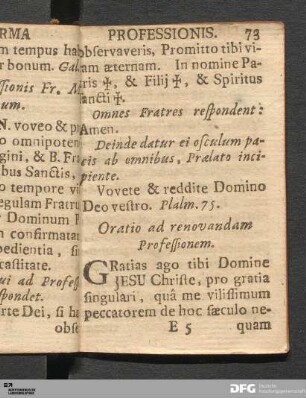 RMA
m tempus hab
r bonum. Gal
ssionis Fr. M
um.
N. voveo & p
o omnipoten
gini, & B. Fra
bus Sanctis,
o tempore vi
egulam Fratru
r Dominum P
n confirmatam
pedientia, si
castitate.
ui ad Profess
spondet.
rte Dei, si ha
obse
PROFESSIONIS. 73
observaveris, Promitto tibi vi-
tam æternam. In nomine Pa-
tris ✠, & Filij ✠, & Spiritus
sancti ✠.
Omnes Fratres respondent:
Amen.
Deinde datur ei osculum pa-
cis ab omnibus, Prælato inci-
piente.
Vovete & reddite Domino
Deo vestro. Psalm. 75.
Oratio ad renovandam
Professionem.
GRatias ago tibi Domine
JESU Christe, pro gratia
singulari, quâ me vilissimum
peccatorem de hoc sæculo ne-
E 5 quam
DFG